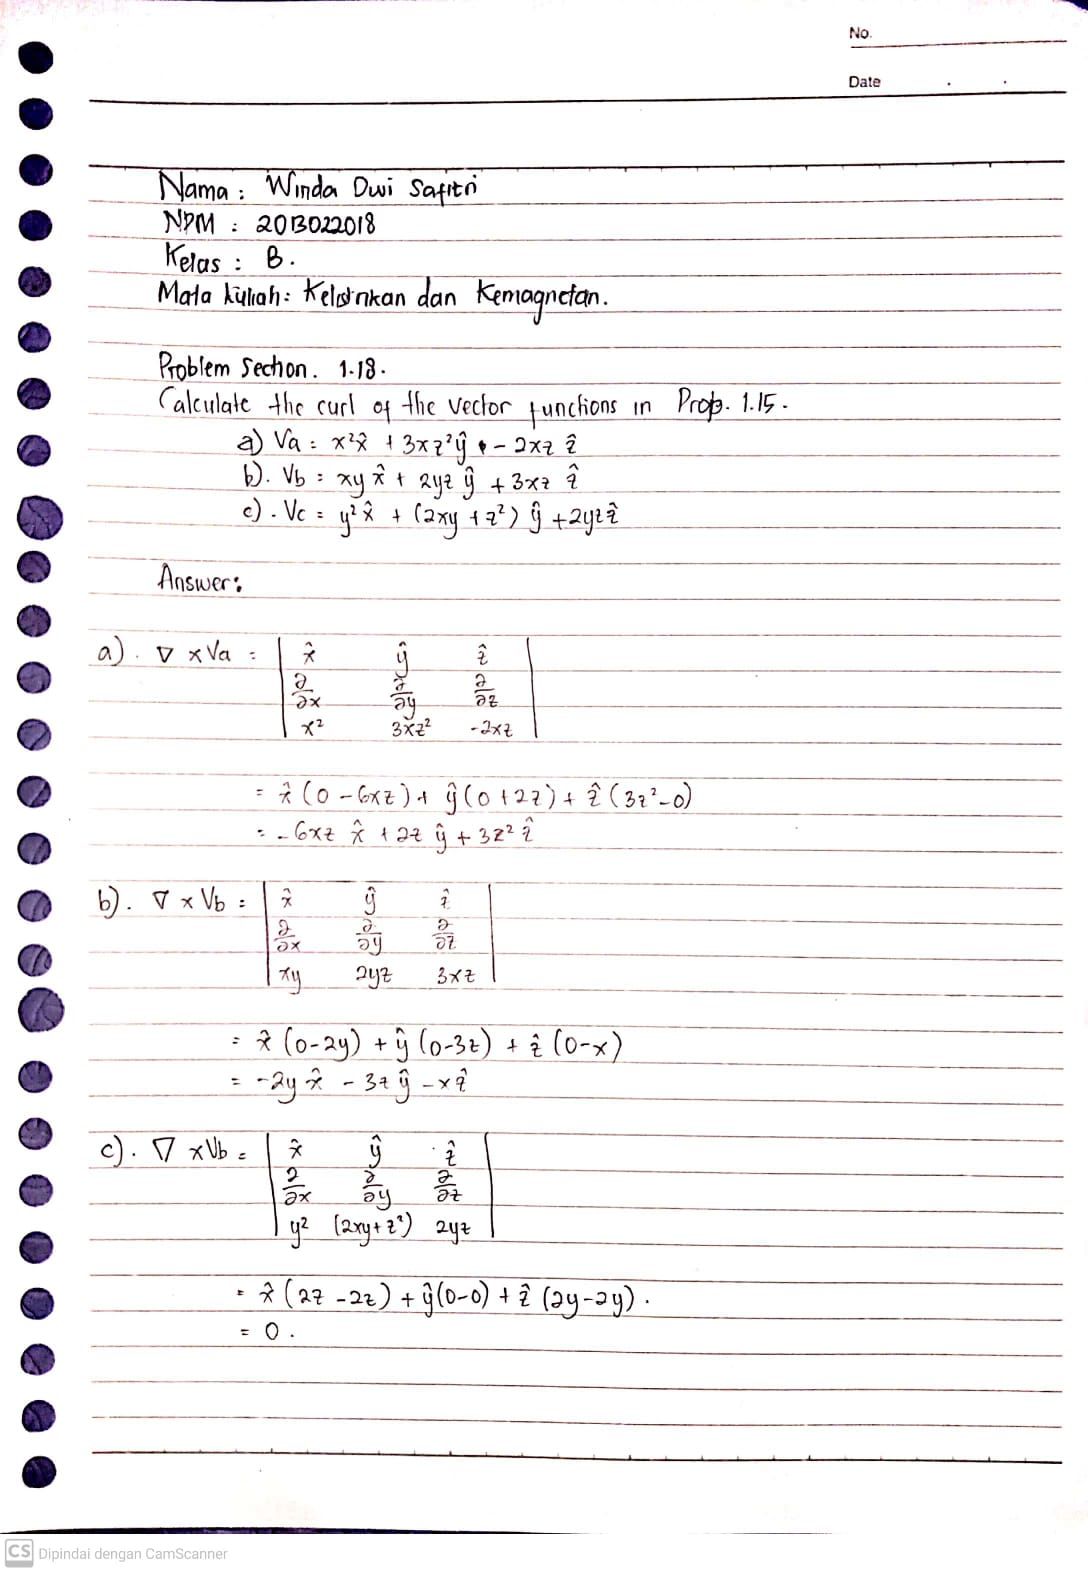 No.
Date
Nama : Winda Dwi Safitri
NPM : 2013022018
Kelas : B.
Mata kuliah : Kelistrikan dan Kemagnetan.
Problem Section. 1.18.
Calculate the curl of the vector functions in Prob. 1.15.
a) Va = x²x̂ + 3xz²ŷ - 2xz ẑ
b). Vb = xy x̂ + 2yz ŷ + 3xz ẑ
c). Vc = y² x̂ + (2xy + z²) ŷ + 2yz ẑ
Answer:
a). ∇ x Va = | x̂ ŷ ẑ |
∂/∂x ∂/∂y ∂/∂z
x² 3xz² -2xz
= x̂ (0 - 6xz) + ŷ (0 + 2z) + ẑ (3z² - 0)
= - 6xz x̂ + 2z ŷ + 3z² ẑ
b). ∇ x Vb = | x̂ ŷ ẑ |
∂/∂x ∂/∂y ∂/∂z
xy 2yz 3xz
= x̂ (0-2y) + ŷ (0-3z) + ẑ (0-x)
= -2y x̂ - 3z ŷ - x ẑ
c). ∇ x Vb = | x̂ ŷ ẑ |
∂/∂x ∂/∂y ∂/∂z
y² (2xy+z²) 2yz
= x̂ (2z - 2z) + ŷ (0-0) + ẑ (2y-2y).
= 0.
CS Dipindai dengan CamScanner